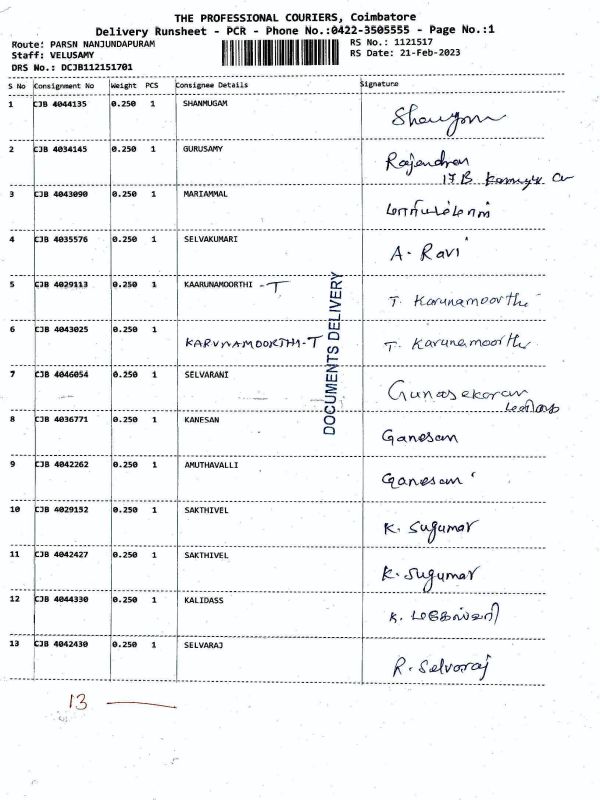 THE PROFESSIONAL COURIERS, Coimbatore
Delivery Runsheet - PCR - Phone No.:0422-3505555 - Page No.:1
Route: PARSN NANJUNDAPURAM
RS No.: 1121517
Staff: VELUSAMY
RS Date: 21-Feb-2023
DRS No.: DCJB112151701
S No Consignment No Weight PCS Consignee Details Signature
1 CJB 4044135 0.250 1 SHANMUGAM
2 CJB 4034145 0.250 1 GURUSAMY Rajendran
17 B
3 CJB 4043090 0.250 1 MARIAMMAL மாரியம்மாள்
4 CJB 4035576 0.250 1 SELVAKUMARI A. Ravi
5 CJB 4029113 0.250 1 KAARUNAMOORTHI - T T. Karunamoorthi
6 CJB 4043025 0.250 1 KARUNAMOORTHI-T T. Karunamoorthi
7 CJB 4046054 0.250 1 SELVARANI Gunasekaran
8 CJB 4036771 0.250 1 KANESAN Ganesan
9 CJB 4042262 0.250 1 AMUTHAVALLI Ganesan
10 CJB 4029152 0.250 1 SAKTHIVEL K. Sugumar
11 CJB 4042427 0.250 1 SAKTHIVEL K. Sugumar
12 CJB 4044330 0.250 1 KALIDASS K. மகேஸ்வரி
13 CJB 4042430 0.250 1 SELVARAJ R. Selvaraj
DOCUMENTS DELIVERY
13